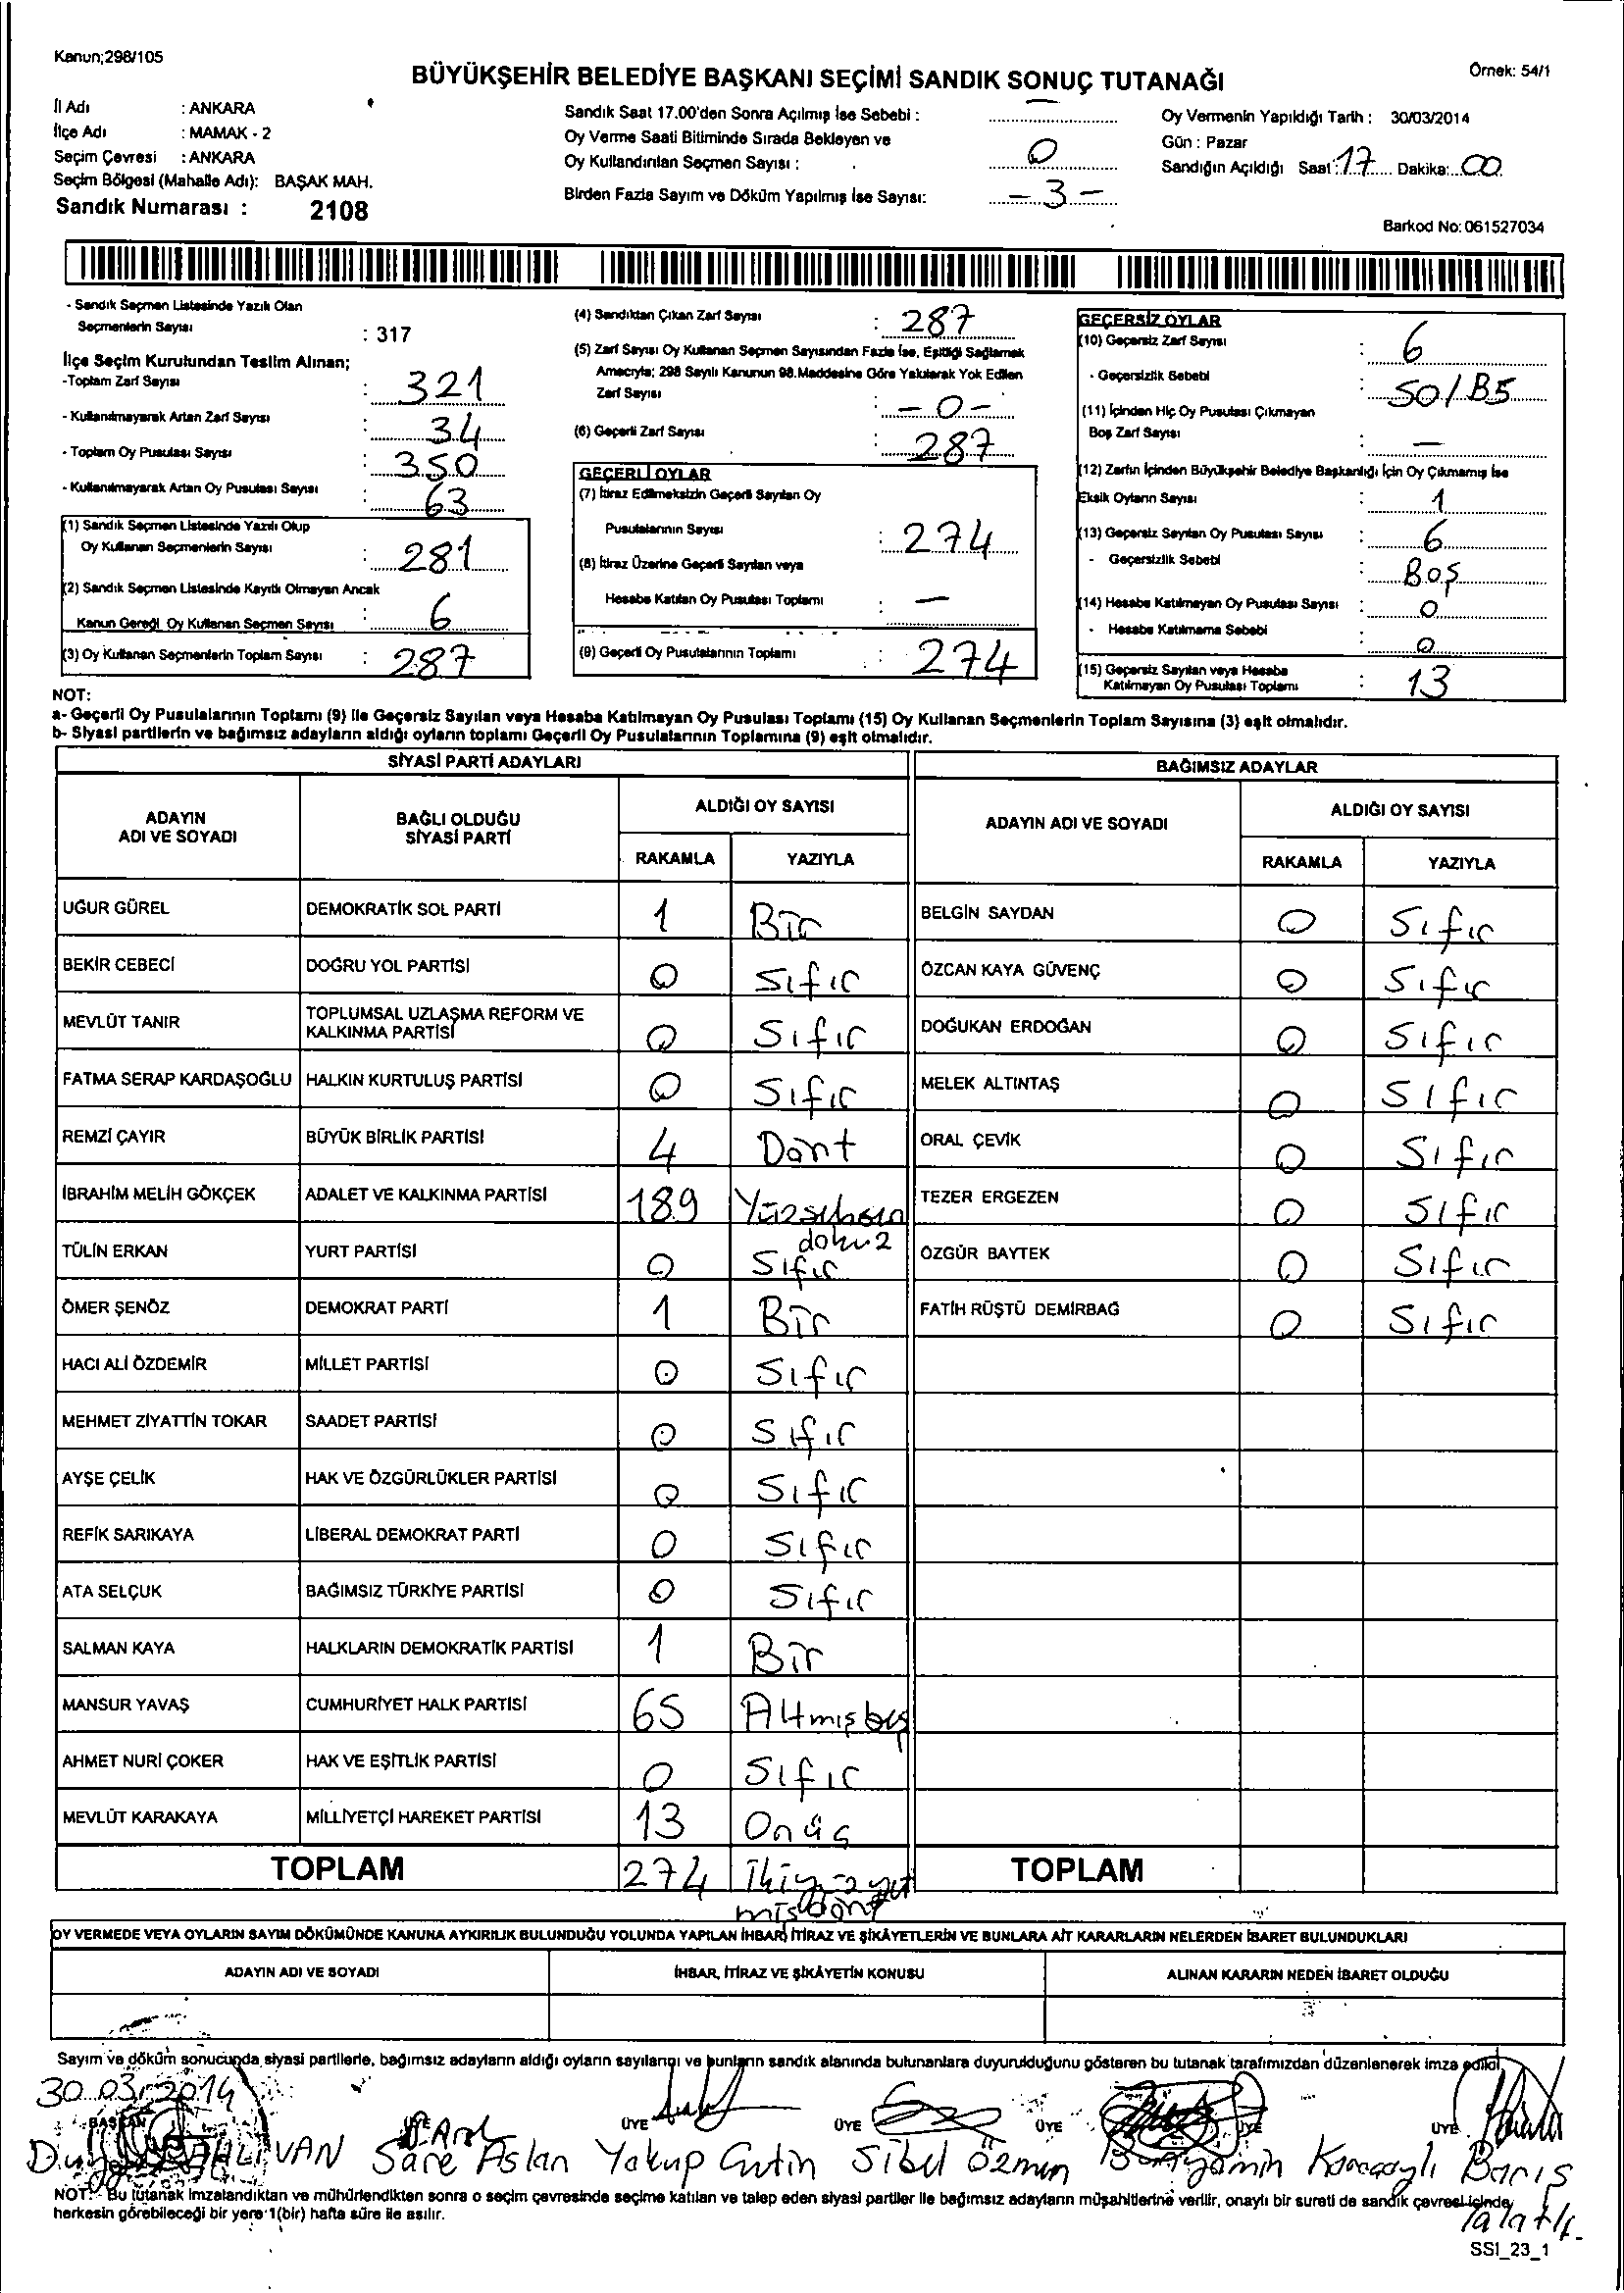 Kanun;298/105
BÜYÜKŞEHİR BELEDİYE BAŞKANI SEÇİMİ SANDIK SONUÇ TUTANAĞI
Örnek: 54/1
İl Adı : ANKARA
İlçe Adı : MAMAK - 2
Seçim Çevresi : ANKARA
Seçim Bölgesi (Mahalle Adı): BAŞAK MAH.
Sandık Numarası : 2108
Sandık Saat 17.00'den Sonra Açılmış İse Sebebi : —
Oy Verme Saati Bitiminde Sırada Bekleyen ve
Oy Kullandırılan Seçmen Sayısı : 0
Birden Fazla Sayım ve Döküm Yapılmış İse Sayısı: - 3 -
Oy Vermenin Yapıldığı Tarih : 30/03/2014
Gün : Pazar
Sandığın Açıldığı Saat : 17 Dakika: 00
Barkod No: 061527034
- Sandık Seçmen Listesinde Yazılı Olan
Seçmenlerin Sayısı : 317
İlçe Seçim Kurulundan Teslim Alınan;
-Toplam Zarf Sayısı : 321
- Kullanılmayarak Artan Zarf Sayısı : 34
- Toplam Oy Pusulası Sayısı : 350
- Kullanılmayarak Artan Oy Pusulası Sayısı : 63
(1) Sandık Seçmen Listesinde Yazılı Olup
Oy Kullanan Seçmenlerin Sayısı : 281
(2) Sandık Seçmen Listesinde Kayıtlı Olmayan Ancak
Kanun Gereği Oy Kullanan Seçmen Sayısı : 6
(3) Oy Kullanan Seçmenlerin Toplam Sayısı : 287
(4) Sandıktan Çıkan Zarf Sayısı : 287
(5) Zarf Sayısı Oy Kullanan Seçmen Sayısından Fazla İse, Eşitliği Sağlamak
Amacıyla; 298 Sayılı Kanunun 98.Maddesine Göre Yakılarak Yok Edilen
Zarf Sayısı : - 0 -
(6) Geçerli Zarf Sayısı : 287
GEÇERLİ OYLAR
(7) İtiraz Edilmeksizin Geçerli Sayılan Oy
Pusulalarının Sayısı : 274
(8) İtiraz Üzerine Geçerli Sayılan veya
Hesaba Katılan Oy Pusulası Toplamı : —
(9) Geçerli Oy Pusulalarının Toplamı : 274
GEÇERSİZ OYLAR
(10) Geçersiz Zarf Sayısı : 6
- Geçersizlik Sebebi : 50/B5
(11) İçinden Hiç Oy Pusulası Çıkmayan
Boş Zarf Sayısı : —
(12) Zarfın İçinden Büyükşehir Belediye Başkanlığı İçin Oy Çıkmamış İse
Eksik Oyların Sayısı : 1
(13) Geçersiz Sayılan Oy Pusulası Sayısı : 6
- Geçersizlik Sebebi : Boş
(14) Hesaba Katılmayan Oy Pusulası Sayısı : 0
- Hesaba Katılmama Sebebi : 0
(15) Geçersiz Sayılan veya Hesaba
Katılmayan Oy Pusulası Toplamı : 13
NOT:
a- Geçerli Oy Pusulalarının Toplamı (9) ile Geçersiz Sayılan veya Hesaba Katılmayan Oy Pusulası Toplamı (15) Oy Kullanan Seçmenlerin Toplam Sayısına (3) eşit olmalıdır.
b- Siyasi partilerin ve bağımsız adayların aldığı oyların toplamı Geçerli Oy Pusulalarının Toplamına (9) eşit olmalıdır.
SİYASİ PARTİ ADAYLARI
BAĞIMSIZ ADAYLAR
ADAYIN ADI VE SOYADI
BAĞLI OLDUĞU SİYASİ PARTİ
ALDIĞI OY SAYISI
RAKAMLA YAZIYLA
ADAYIN ADI VE SOYADI
ALDIĞI OY SAYISI
RAKAMLA YAZIYLA
UĞUR GÜREL DEMOKRATİK SOL PARTİ 1 Bir BELGİN SAYDAN 0 Sıfır
BEKİR CEBECİ DOĞRU YOL PARTİSİ 0 Sıfır ÖZCAN KAYA GÜVENÇ 0 Sıfır
MEVLÜT TANIR TOPLUMSAL UZLAŞMA REFORM VE KALKINMA PARTİSİ 0 Sıfır DOĞUKAN ERDOĞAN 0 Sıfır
FATMA SERAP KARDAŞOĞLU HALKIN KURTULUŞ PARTİSİ 0 Sıfır MELEK ALTINTAŞ 0 Sıfır
REMZİ ÇAYIR BÜYÜK BİRLİK PARTİSİ 4 Dört ORAL ÇEVİK 0 Sıfır
İBRAHİM MELİH GÖKÇEK ADALET VE KALKINMA PARTİSİ 189 Yüzseksen dokuz TEZER ERGEZEN 0 Sıfır
TÜLİN ERKAN YURT PARTİSİ 0 Sıfır ÖZGÜR BAYTEK 0 Sıfır
ÖMER ŞENÖZ DEMOKRAT PARTİ 1 Bir FATİH RÜŞTÜ DEMİRBAĞ 0 Sıfır
HACI ALİ ÖZDEMİR MİLLET PARTİSİ 0 Sıfır
MEHMET ZİYATTİN TOKAR SAADET PARTİSİ 0 Sıfır
AYŞE ÇELİK HAK VE ÖZGÜRLÜKLER PARTİSİ 0 Sıfır
REFİK SARIKAYA LİBERAL DEMOKRAT PARTİ 0 Sıfır
ATA SELÇUK BAĞIMSIZ TÜRKİYE PARTİSİ 0 Sıfır
SALMAN KAYA HALKLARIN DEMOKRATİK PARTİSİ 1 Bir
MANSUR YAVAŞ CUMHURİYET HALK PARTİSİ 65 Altmışbeş
AHMET NURİ ÇOKER HAK VE EŞİTLİK PARTİSİ 0 Sıfır
MEVLÜT KARAKAYA MİLLİYETÇİ HAREKET PARTİSİ 13 Onüç
TOPLAM 274 İkiyüzyet mişdört TOPLAM
OY VERMEDE VEYA OYLARIN SAYIM DÖKÜMÜNDE KANUNA AYKIRILIK BULUNDUĞU YOLUNDA YAPILAN İHBAR, İTİRAZ VE ŞİKÂYETLERİN VE BUNLARA AİT KARARLARIN NELERDEN İBARET BULUNDUKLARI
ADAYIN ADI VE SOYADI İHBAR, İTİRAZ VE ŞİKÂYETİN KONUSU ALINAN KARARIN NEDEN İBARET OLDUĞU
Sayım ve döküm sonucunda siyasi partilerle, bağımsız adayların aldığı oyların sayılarını ve bunların sandık alanında bulunanlara duyurulduğunu gösteren bu tutanak tarafımızdan düzenlenerek imza edildi.
30.03.2014
BAŞKAN ÜYE ÜYE ÜYE ÜYE ÜYE ÜYE
Sare Aslan Yakup Sibel Özmen Bünyamin Barış
NOT: Bu tutanak imzalandıktan ve mühürlendikten sonra o seçim çevresinde seçime katılan ve talep eden siyasi partiler ile bağımsız adayların müşahitlerine verilir, onaylı bir sureti de sandık çevresi içinde
herkesin görebileceği bir yere 1(bir) hafta süre ile asılır.
SSI_23_1